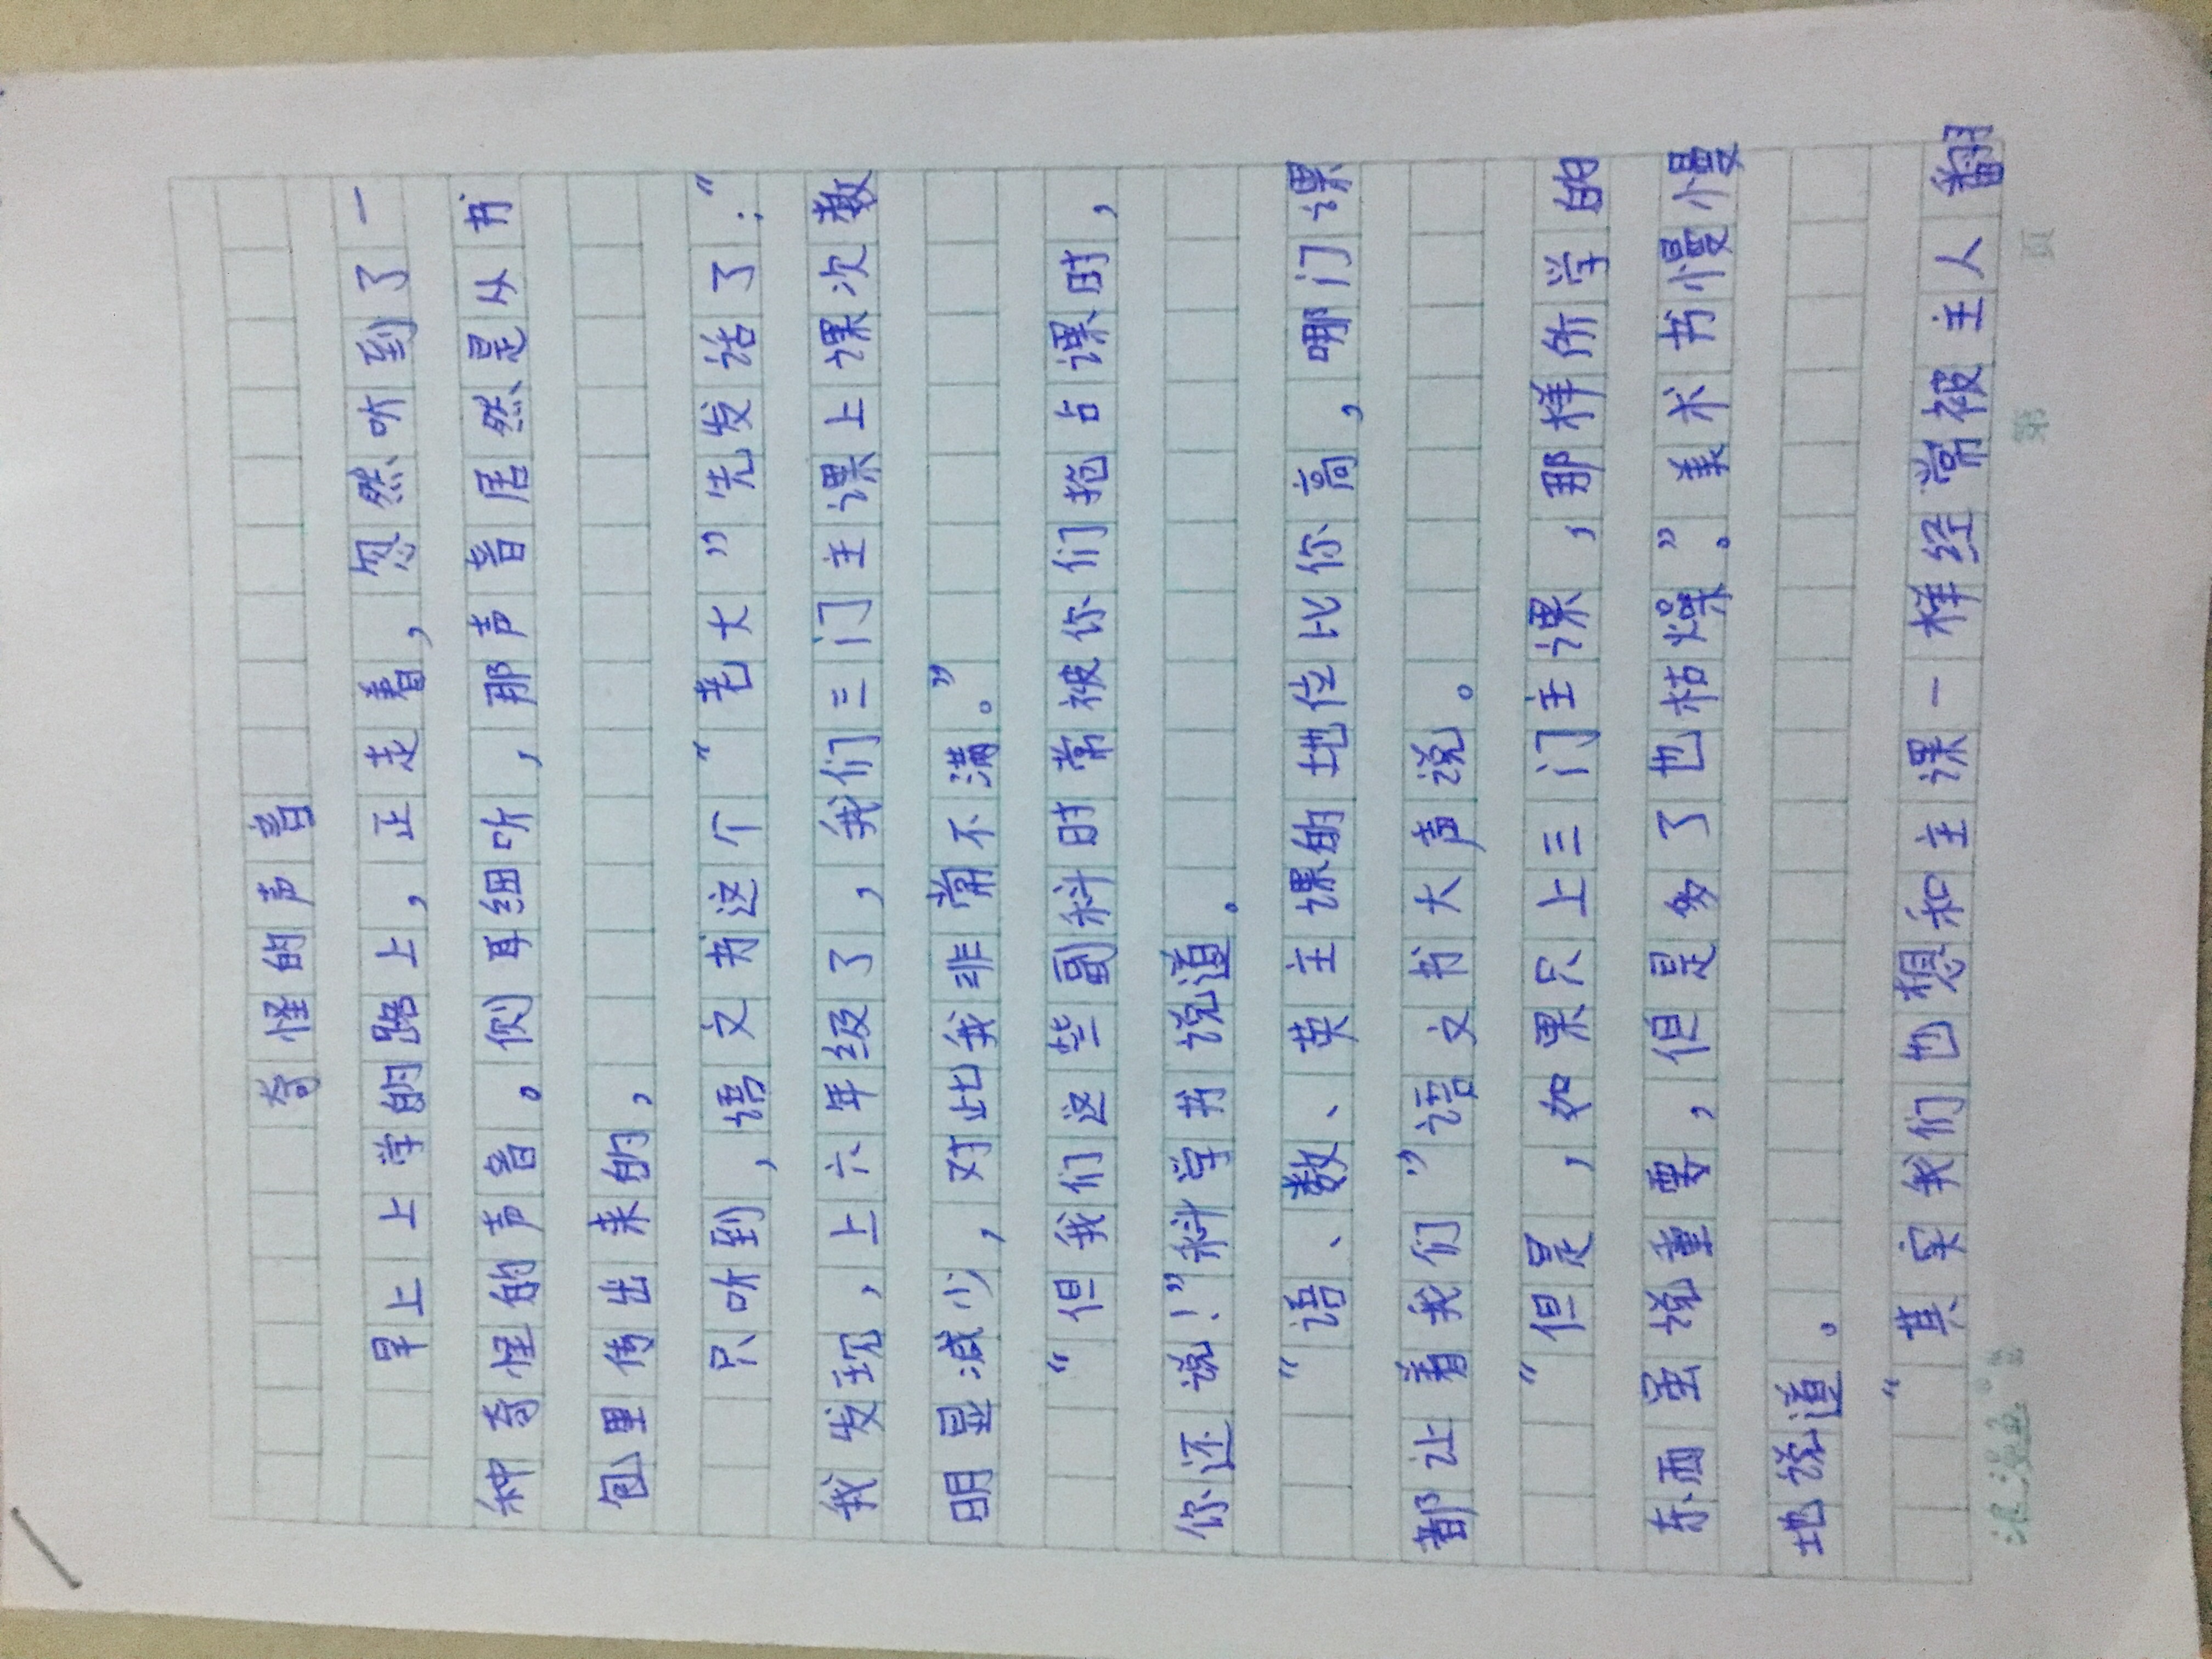 奇怪的声音
早上上学的路上，正走着，忽然听到了一
种奇怪的声音。侧耳细听，那声音居然是从书
包里传出来的，
只听到，语文书这个“老大”先发话了：“
我发现，上六年级了，我们三门主课上课次数
明显减少，对此我非常不满。”
“但我们这些副科时常被你们抢占课时，
你还说！”科学书说道。
“语、数、英主课的地位比你高，哪门课
都让着我们”语文书大声说。
“但是，如果只上三门主课，那样所学的
东西虽说重要，但是多了也枯燥”。美术书慢慢
地说道。
“其实我们也想和主课一样经常被主人翻
第 页